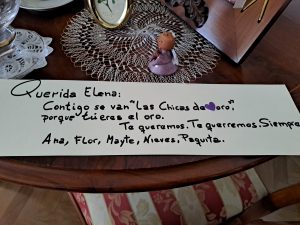 Querida Elena:
Contigo se van "Las Chicas de💜oro",
porque tú eres el oro.
Te queremos. Te querremos. Siempre
Ana, Flor, Mayte, Nieves, Paquita.